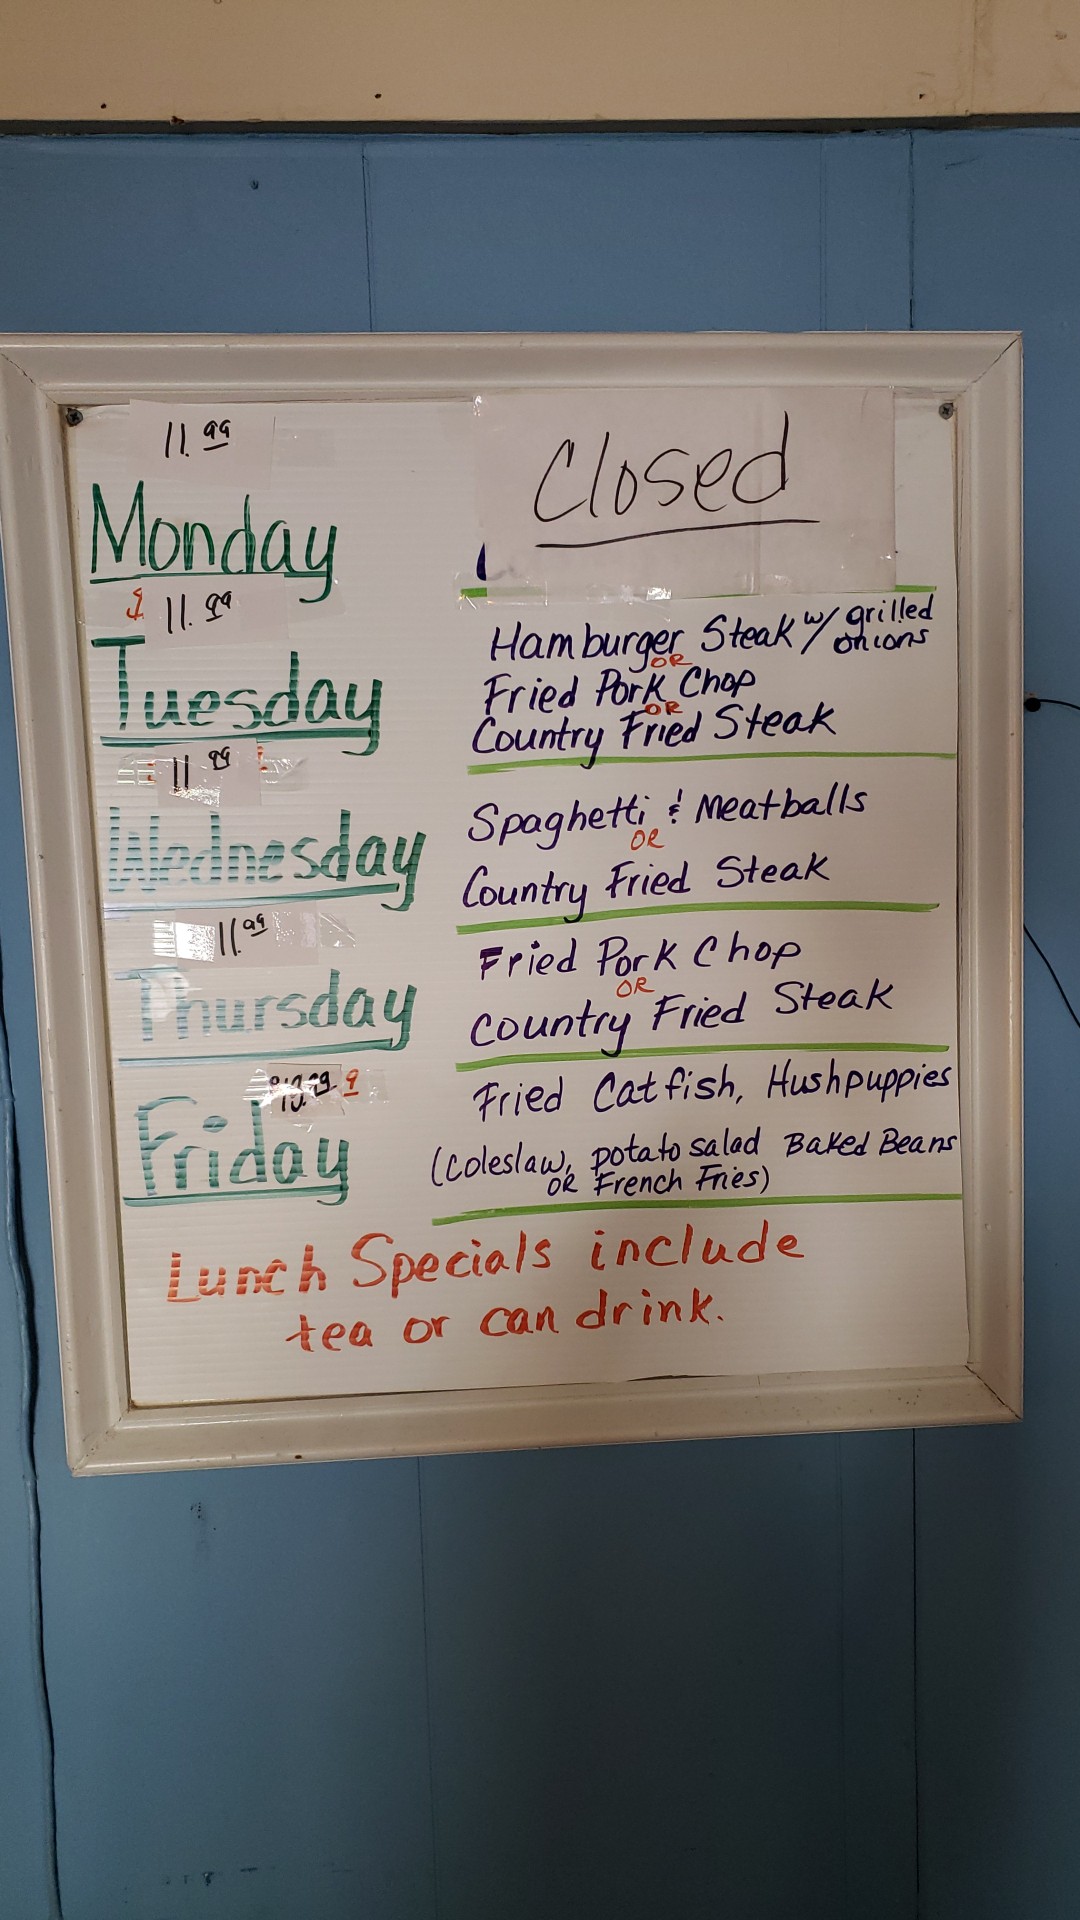 11.99
Closed
Monday
11.99
Hamburger Steak w/ grilled onions
OR
Fried Pork Chop
OR
Country Fried Steak
Tuesday
11.99
Spaghetti & Meatballs
OR
Country Fried Steak
Wednesday
11.99
Fried Pork Chop
OR
Country Fried Steak
Thursday
Fried Catfish, Hushpuppies
(Coleslaw, potato salad Baked Beans
OR French Fries)
Friday
Lunch Specials include
tea or can drink.